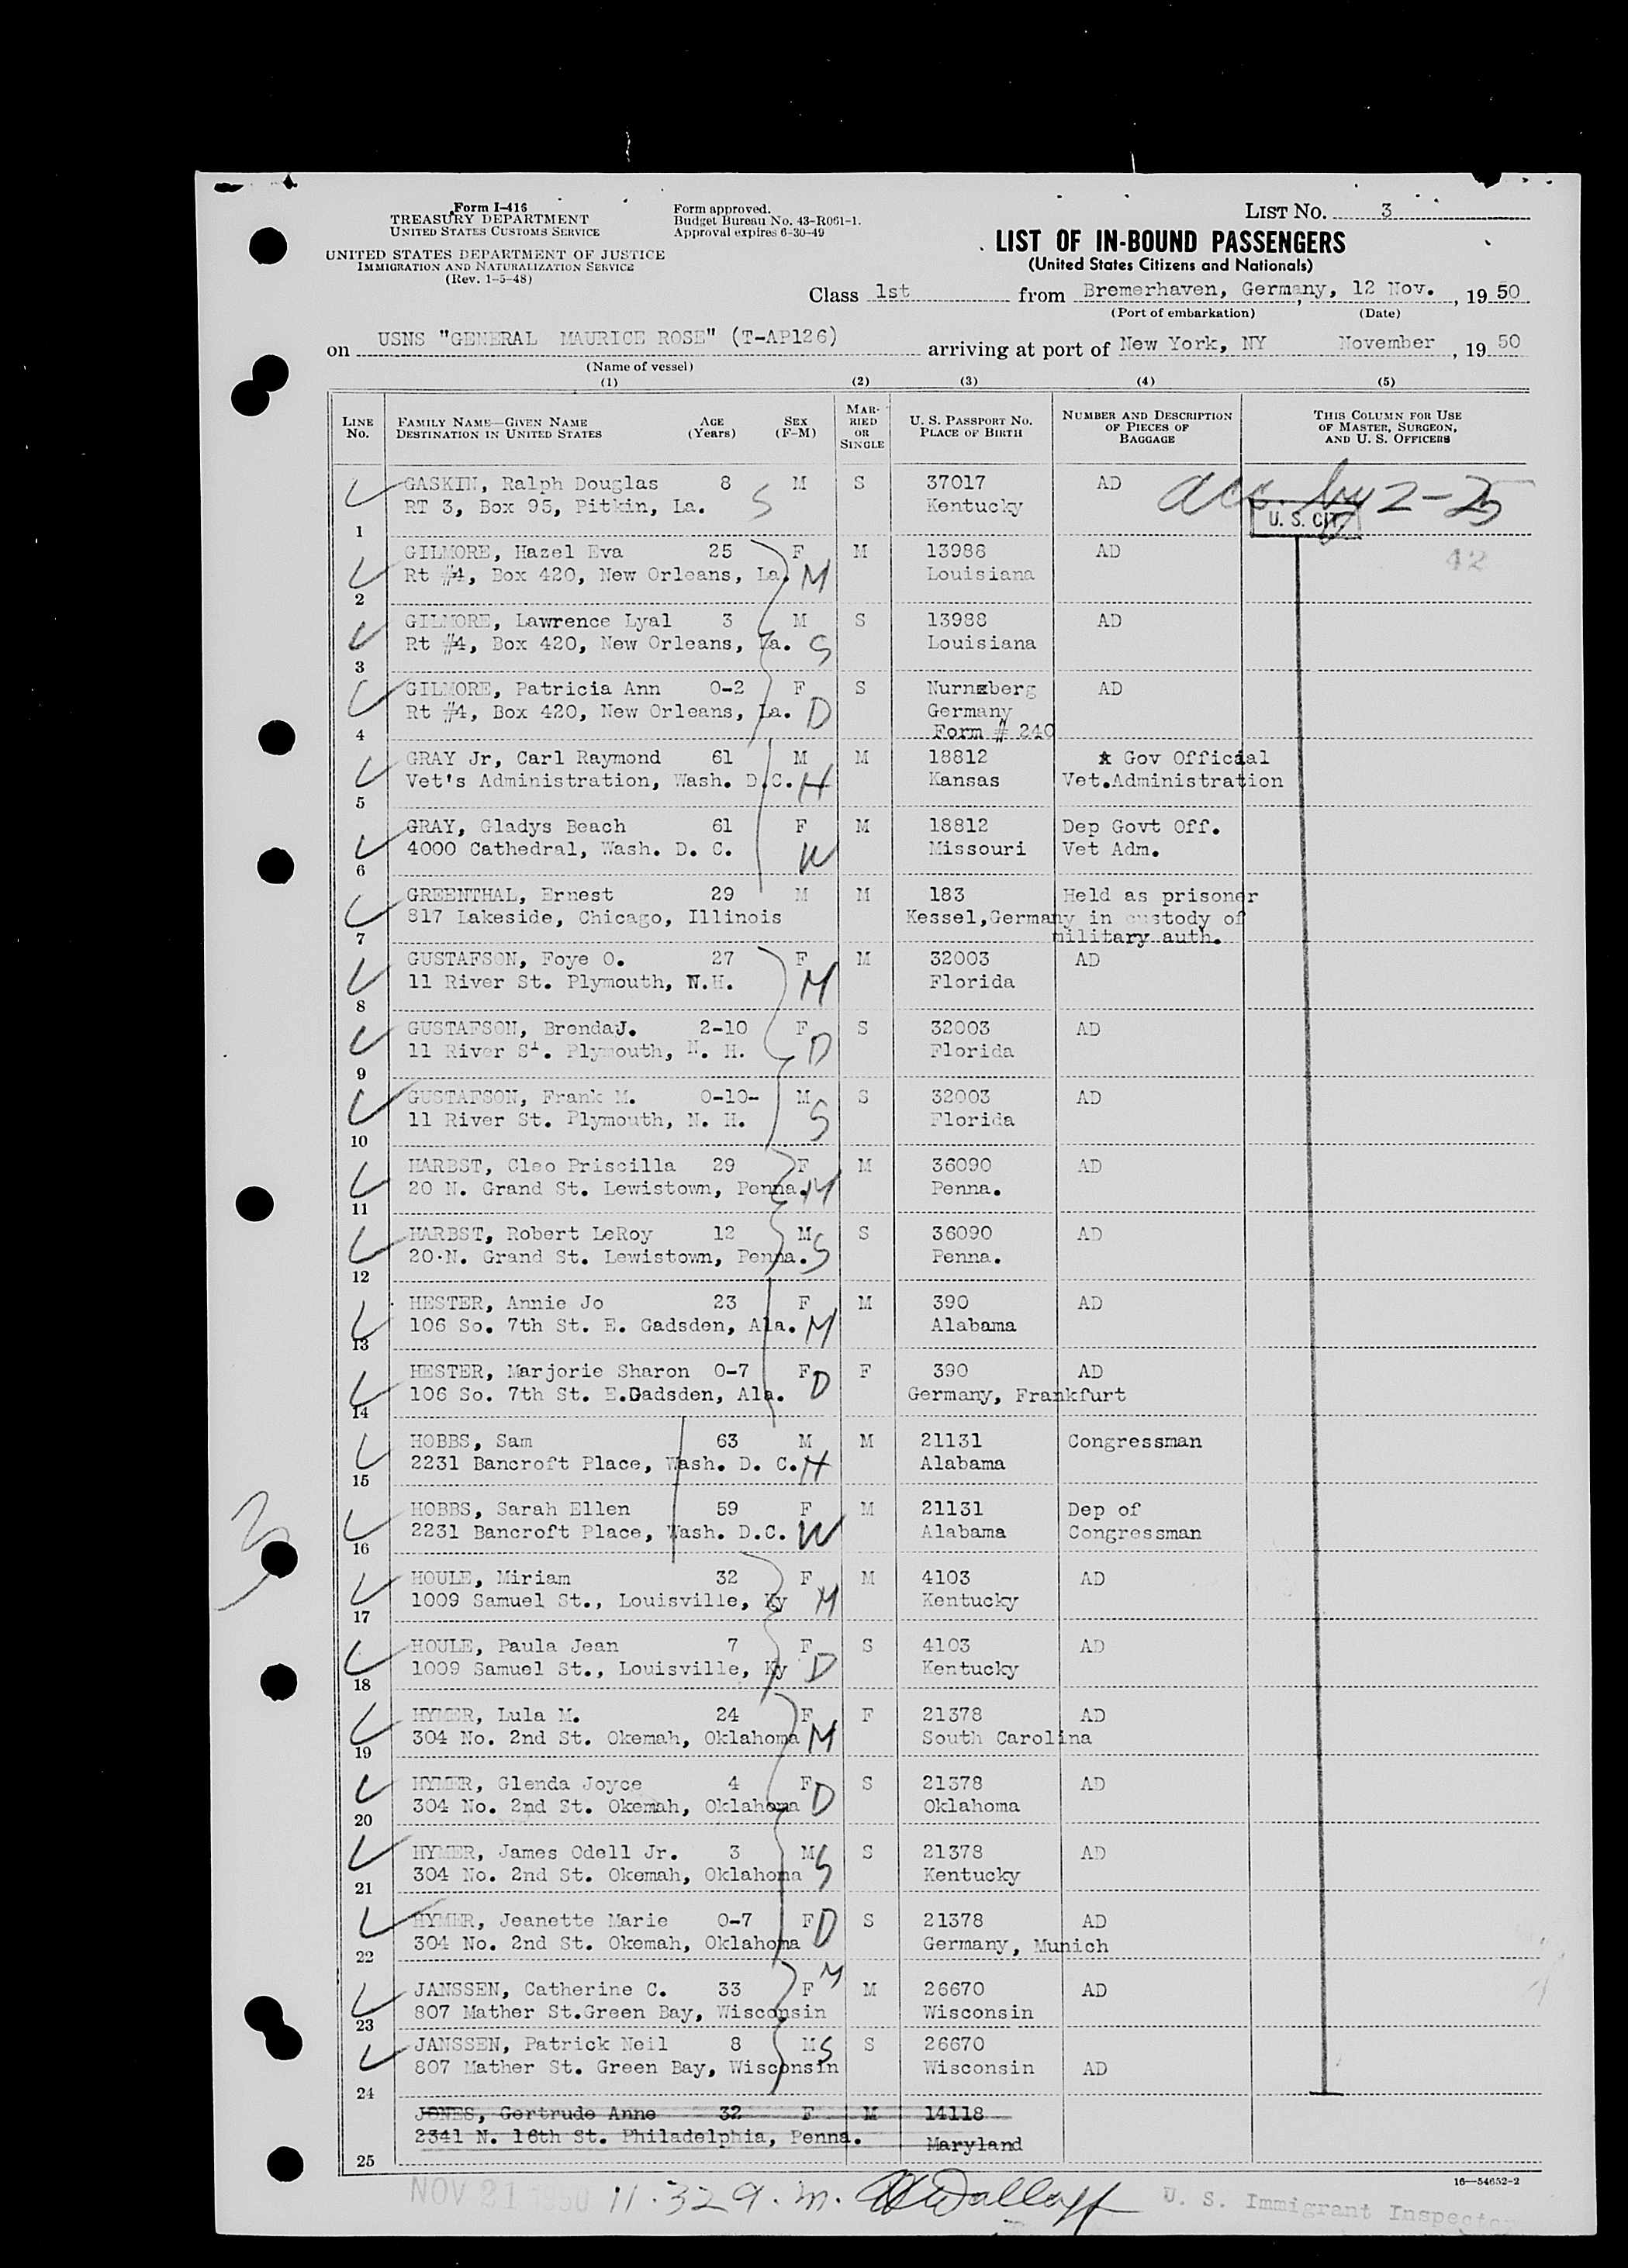 Form I-416
TREASURY DEPARTMENT
UNITED STATES CUSTOMS SERVICE
UNITED STATES DEPARTMENT OF JUSTICE
IMMIGRATION AND NATURALIZATION SERVICE
(Rev. 1-5-48)
Form approved.
Budget Bureau No. 43-R061-1.
Approval expires 6-30-49
LIST NO. 3
LIST OF IN-BOUND PASSENGERS
(United States Citizens and Nationals)
Class 1st from Bremerhaven, Germany, 12 Nov., 1950
(Port of embarkation) (Date)
on USNS "GENERAL MAURICE ROSE" (T-AP126) arriving at port of New York, NY November, 1950
(Name of vessel)
(1) (2) (3) (4) (5)
LINE NO. FAMILY NAME—GIVEN NAME DESTINATION IN UNITED STATES AGE (Years) SEX (F-M) MARRIED OR SINGLE U. S. PASSPORT NO. PLACE OF BIRTH NUMBER AND DESCRIPTION OF PIECES OF BAGGAGE THIS COLUMN FOR USE OF MASTER, SURGEON, AND U. S. OFFICERS
GASKIN, Ralph Douglas 8 M S 37017 AD 2-25
RT 3, Box 95, Pitkin, La. S Kentucky U. S. CIT.
1
GILMORE, Hazel Eva 25 F M 13988 AD 42
Rt #4, Box 420, New Orleans, La. M Louisiana
2
GILMORE, Lawrence Lyal 3 M S 13988 AD
Rt #4, Box 420, New Orleans, La. S Louisiana
3
GILMORE, Patricia Ann 0-2 F S Nurnxberg AD
Rt #4, Box 420, New Orleans, La. D Germany
4 Form # 240
GRAY Jr, Carl Raymond 61 M M 18812 Gov Official
Vet's Administration, Wash. D.C. H Kansas Vet.Administration
5
GRAY, Gladys Beach 61 F M 18812 Dep Govt Off.
4000 Cathedral, Wash. D. C. W Missouri Vet Adm.
6
GREENTHAL, Ernest 29 M M 183 Held as prisoner
817 Lakeside, Chicago, Illinois Kessel,Germany in custody of
7 military auth.
GUSTAFSON, Foye O. 27 F M 32003 AD
11 River St. Plymouth, N.H. M Florida
8
GUSTAFSON, BrendaJ. 2-10 F S 32003 AD
11 River St. Plymouth, N. H. D Florida
9
GUSTAFSON, Frank M. 0-10- M S 32003 AD
11 River St. Plymouth, N. H. S Florida
10
HARBST, Cleo Priscilla 29 F M 36090 AD
20 N. Grand St. Lewistown, Penna. M Penna.
11
HARBST, Robert LeRoy 12 M S 36090 AD
20 N. Grand St. Lewistown, Penna. S Penna.
12
HESTER, Annie Jo 23 F M 390 AD
106 So. 7th St. E. Gadsden, Ala. M Alabama
13
HESTER, Marjorie Sharon 0-7 F F 390 AD
106 So. 7th St. E.Gadsden, Ala. D Germany, Frankfurt
14
HOBBS, Sam 63 M M 21131 Congressman
2231 Bancroft Place, Wash. D. C. H Alabama
15
HOBBS, Sarah Ellen 59 F M 21131 Dep of
2231 Bancroft Place, Wash. D.C. W Alabama Congressman
16
HOULE, Miriam 32 F M 4103 AD
1009 Samuel St., Louisville, Ky M Kentucky
17
HOULE, Paula Jean 7 F S 4103 AD
1009 Samuel St., Louisville, Ky D Kentucky
18
HYMER, Lula M. 24 F F 21378 AD
304 No. 2nd St. Okemah, Oklahoma M South Carolina
19
HYMER, Glenda Joyce 4 F S 21378 AD
304 No. 2nd St. Okemah, Oklahoma D Oklahoma
20
HYMER, James Odell Jr. 3 M S 21378 AD
304 No. 2nd St. Okemah, Oklahoma S Kentucky
21
HYMER, Jeanette Marie 0-7 F D S 21378 AD
304 No. 2nd St. Okemah, Oklahoma Germany, Munich
22
JANSSEN, Catherine C. 33 F M M 26670 AD
807 Mather St.Green Bay, Wisconsin Wisconsin
23
JANSSEN, Patrick Neil 8 M S S 26670
807 Mather St. Green Bay, Wisconsin Wisconsin AD
24
JONES, Gertrude Anne 32 F M 14118
2341 N. 16th St. Philadelphia, Penna. Maryland
25
16—54652-2
NOV 21 1950 11.32 a.m. U. S. Immigrant Inspector